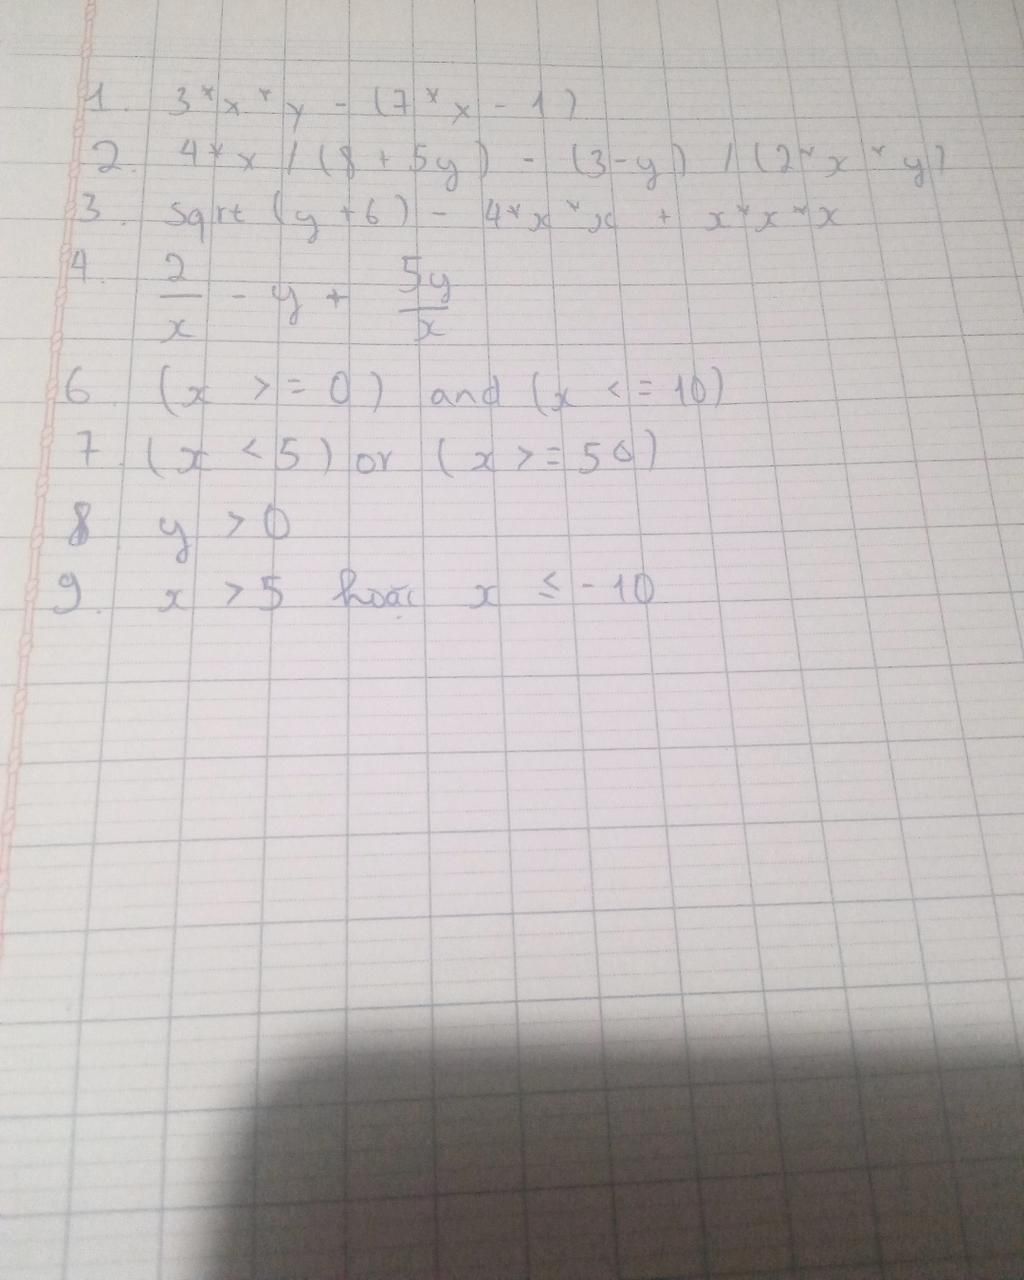 1. 3*x*y - (7*x - 1)
2. 4*x / (8 + 5y) - (3-y) / (2*x*y)
3. sqrt (y+6) - 4*x*x + x*x*x
4. 2/x - y + 5y/x
6 (x >= 0) and (x <= 10)
7 (x < 5) or (x >= 50)
8 y > 0
9. x > 5 hoặc x ≤ -10